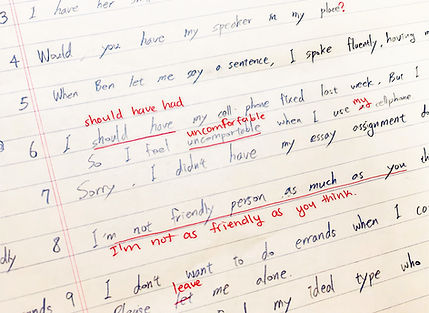 3 I have her
4 Would, you have my speaker in my place?
5 When Ben let me say a sentence, I spoke fluently, having
should have had
6 I should have my cell phone fixed last week. But I
uncomfortable my
So I feel uncomportable when I use cellphone
7 Sorry, I didn't have my essay assignment
8 I'm not friendly person as much as you
I'm not as friendly as you think.
9 I don't want to do errands when I
leave
Please let me alone.
my ideal type who